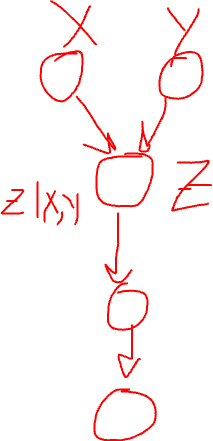 X Y
Z|X,Y Z